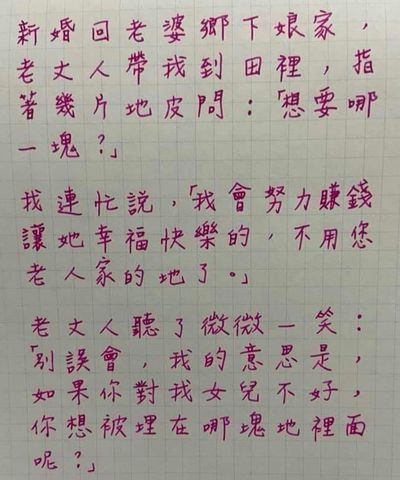 新婚回老婆鄉下娘家，
老丈人帶我到田裡，指
著幾片地皮問：「想要哪
一塊？」
我連忙說，「我會努力賺錢
讓她幸福快樂的，不用您
老人家的地了。」
老丈人聽了微微一笑：
「別誤會，我的意思是，
如果你對我女兒不好，
你想被埋在哪塊地裡面
呢？」